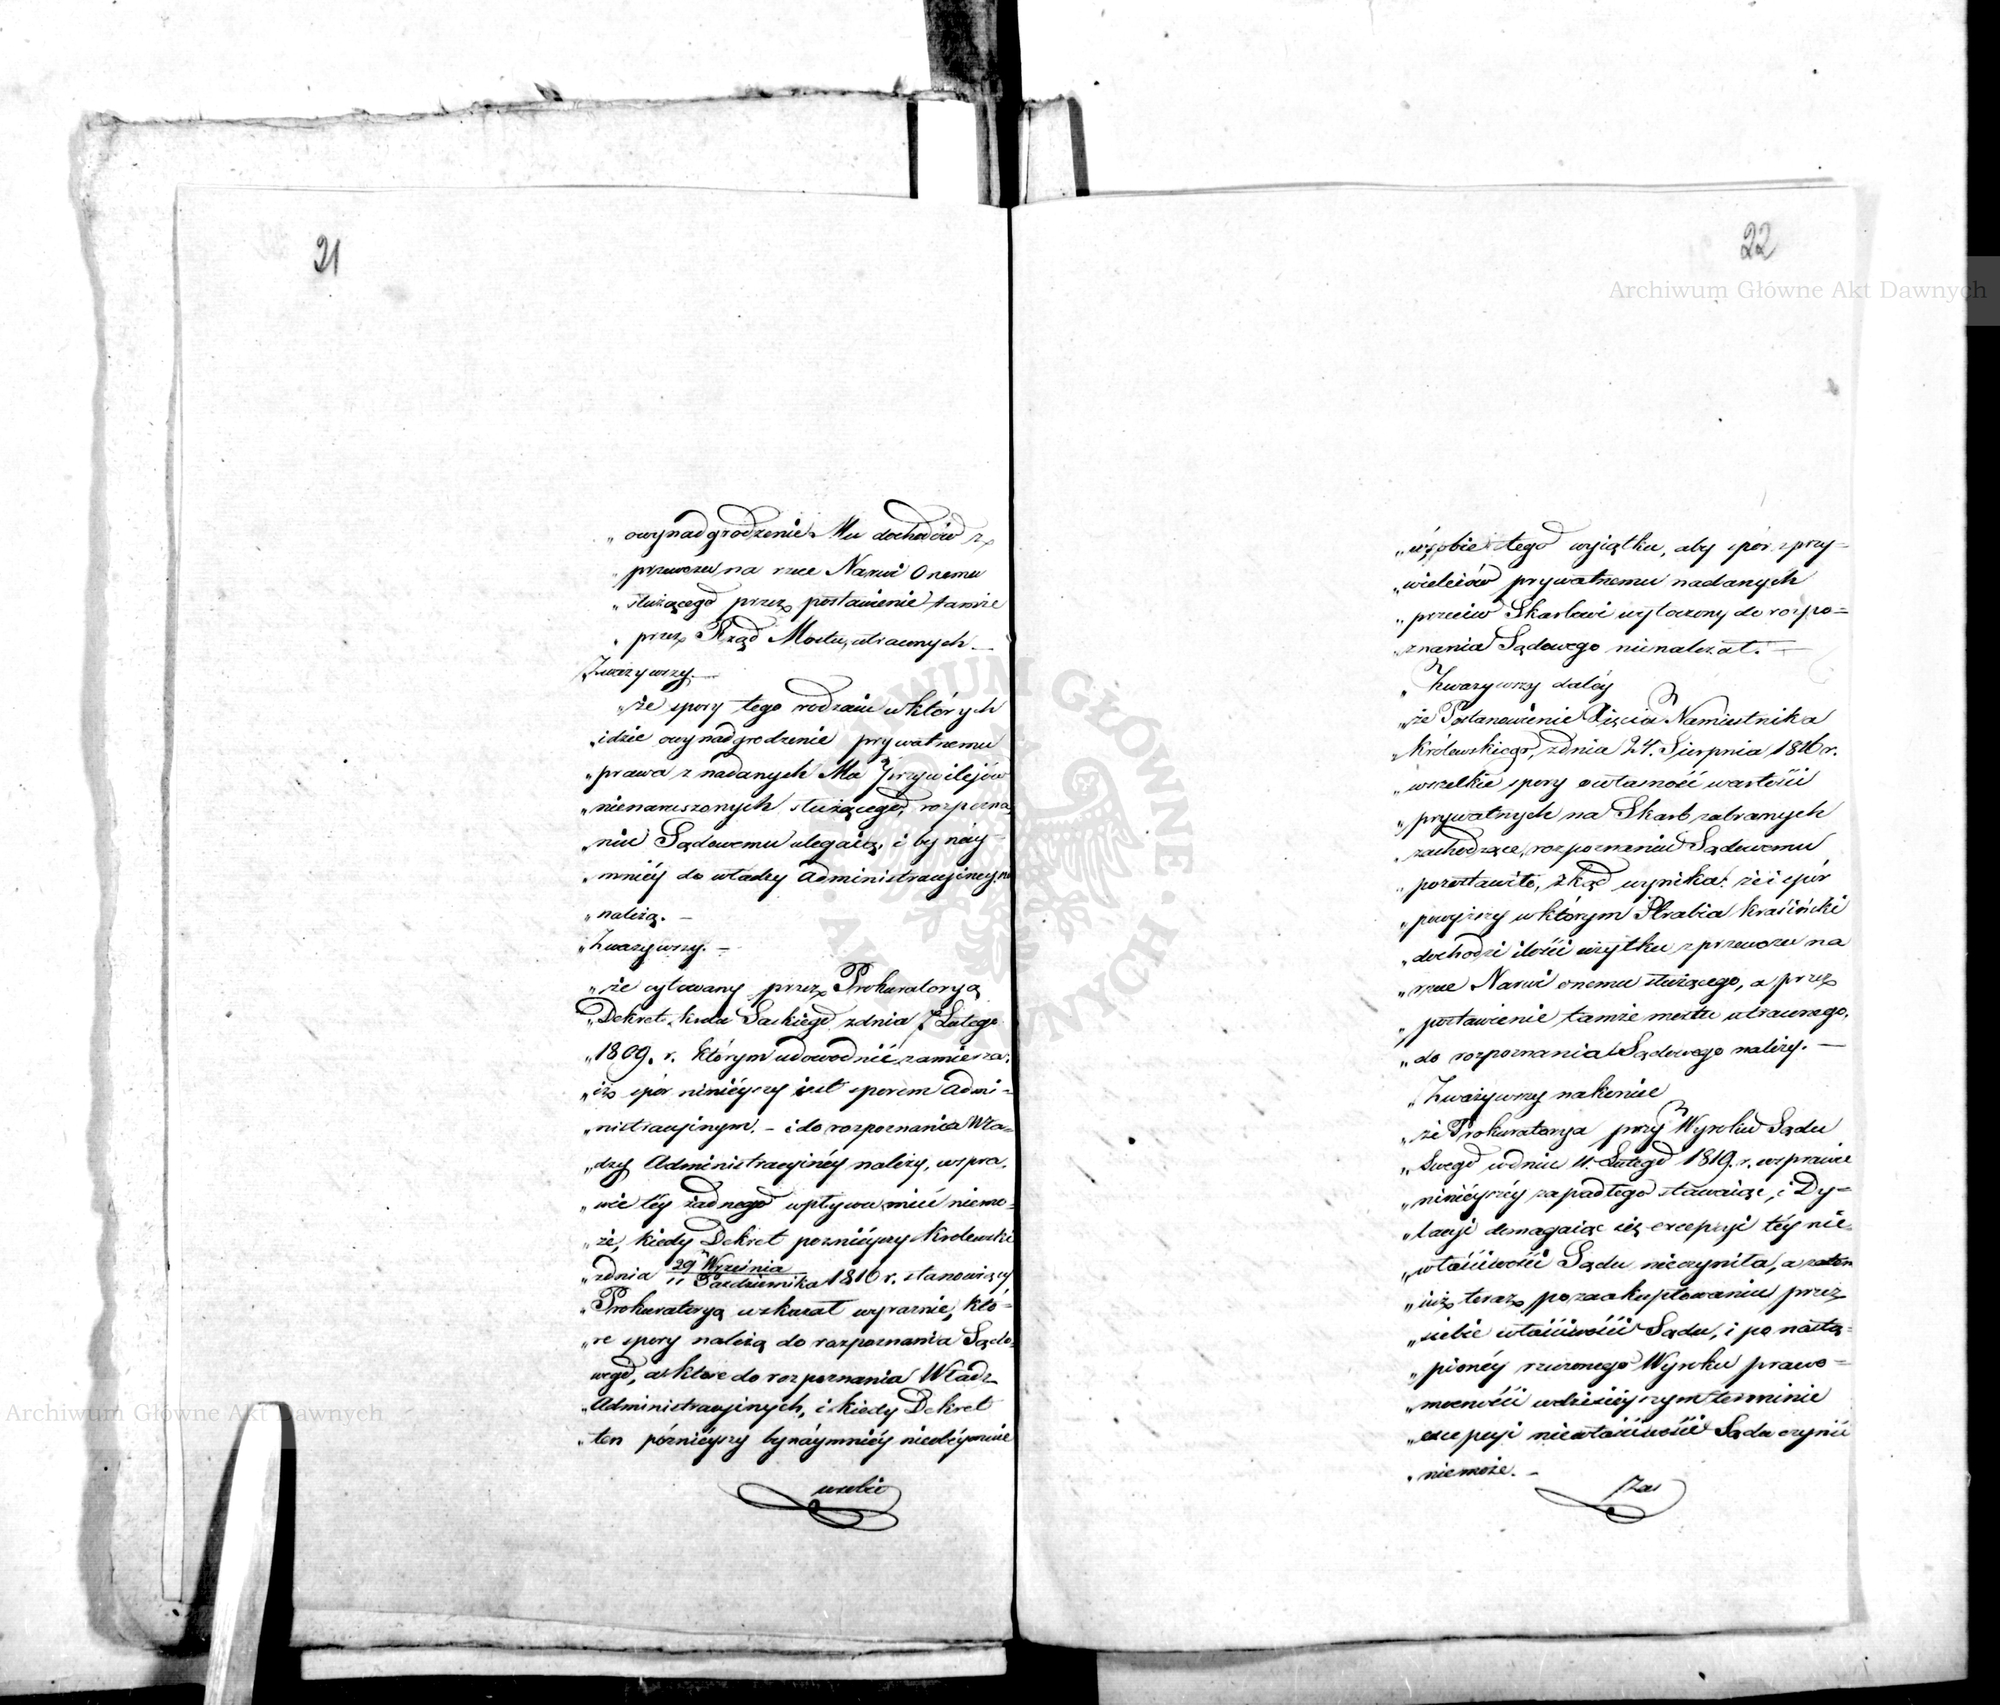 21
„ owynadgrodzenie Mu dochodów z
„ przewozu na rzece Narwi Onemu
„ służącego przez postawienie tamże
„ przez Rząd Mostu, utraconych. —
Zważywszy. —
„ że spory tego rodzaiu w których
„ idzie owynadgrodzenie prywatnemu
„ prawa z nadanych Mu Przywilejów
„ nienaruszonych służącego, rozpozna
„ niu Sądowemu ulegaią, i by náy-
„ mniéy do władzy Administracyjnéy nie
„ należą. —
„ Zważywszy. —
„ że cytowany przez Prokuratoryą
„ Dekret Króla Saskiego zdnia 7 Lutego
„ 1809. r. którym udowodnić zamierza,
„ iż spór niniéyszy iest sporem Admi-
„ nistracyjnym. — i do rozpoznania Wła-
„ dzy Administracyjnéy należy, wspra-
„ wie téy żadnego wpływu mieć niemo-
„ że, kiedy Dekret poznieyszy Królewski
„ zdnia 29 Września
11 Pazdziernika 1816 r. stanowiący
„ Prokuratoryą wskazał wyraznie, któ-
„ re spory należą do rozpoznania Sądo-
wego, a które do rozpoznania Władz
„ Administracyjnych, i kiedy Dekret
„ ten późnieyszy bynáymniéy nieobéymuie
wsobie
22
„ wsobie tego wyiątku, aby spór z przy-
„ wileiów prywatnemu nadanych
„ przeciw Skarbowi wytoczony do rozpo-
„ znania Sądowego nienależał. —
„ Zważywszy daléy
„ że Postanowienie Xięcia Namiestnika
„ Królewskiego, zdnia 24. Sierpnia 1816 r.
„ wszelkie spory owłasność wartości
„ prywatnych na Skarb zabranych
„ zachodzące, rozpoznaniu Sądowemu
„ pozostawiło, zkąd wynika: że i spór
„ powyższy w którym Hrabia Krasiński
„ dochodzi ilości użytku z przewozu na
„ rzece Narwi onemu służącego, a przez
„ postawienie tamże mostu utraconego,
„ do rozpoznania Sądowego należy. —
„ Zważywszy nakoniec
„ że Prokuratorya przy Wyroku Sądu
„ Swego wdniu 4. Lutego 1819. r. wsprawie
„ niniéyszéy zapadłego stawaiąc, i Dy-
„ lacyi domagaiąc się excepcyi téy nie-
„ właściwości Sądu nieczyniła, a zatem
„ iuż teraz po zaakceptowaniu przez
„ siebie właściwości Sądu, i po nastą-
„ pionéy rzeczonego Wyroku prawo-
„ mocności wdzisiéyszym terminie
„ excepcyi niewłaściwości Sądu czynić
„ niemoże. —
Zas
Archiwum Główne Akt Dawnych
Archiwum Główne Akt Dawnych